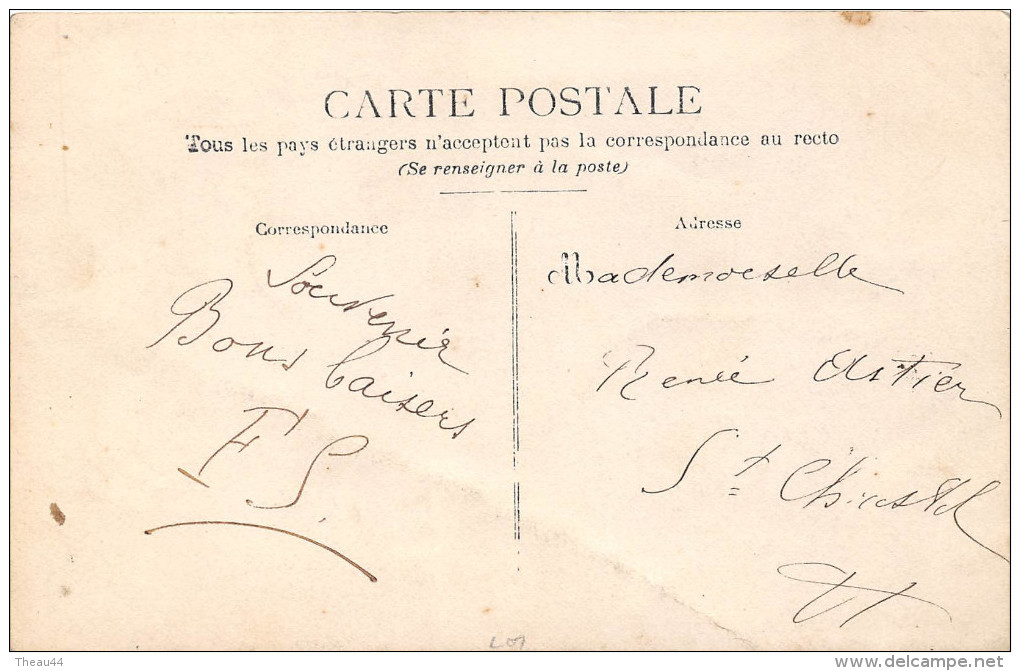 CARTE POSTALE
Tous les pays étrangers n'acceptent pas la correspondance au recto
(Se renseigner à la poste)
Correspondance
Souvenir
Bons baisers
F S.
Adresse
Mademoiselle
Renée Astier
St
Theau44
delcampe.net